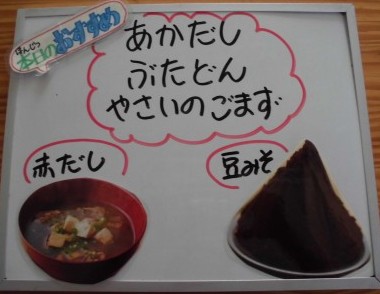 ほんじつ
本日のおすすめ
あかだし
ぶたどん
やさいのごまず
赤だし
豆みそ